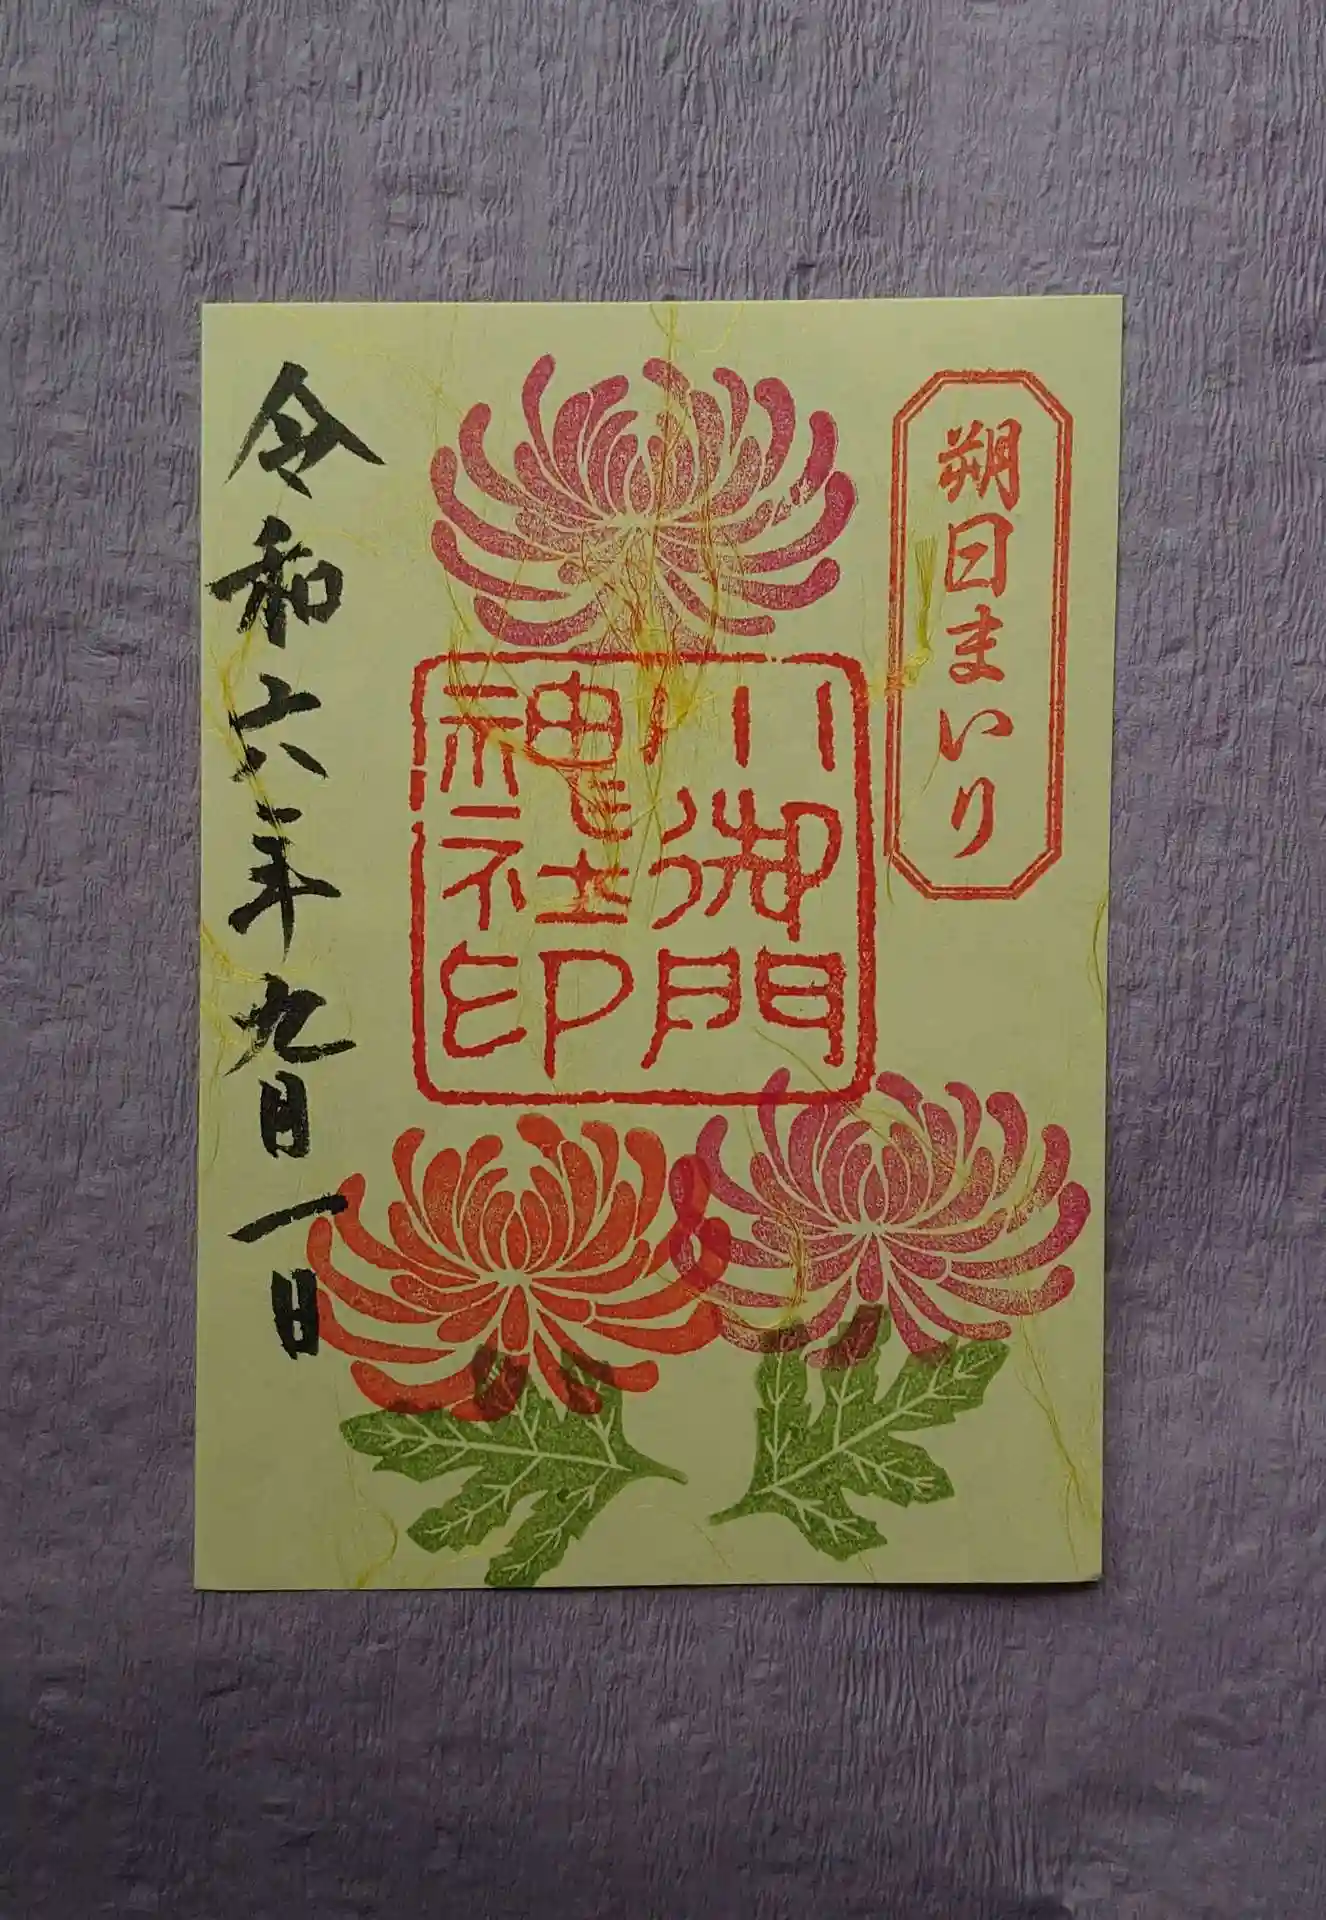 朔日まいり
小御門
神社印
令和六年九月一日